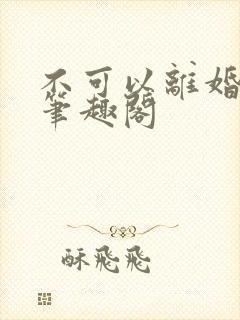 不可以離婚
筆趣閣
酥飛飛